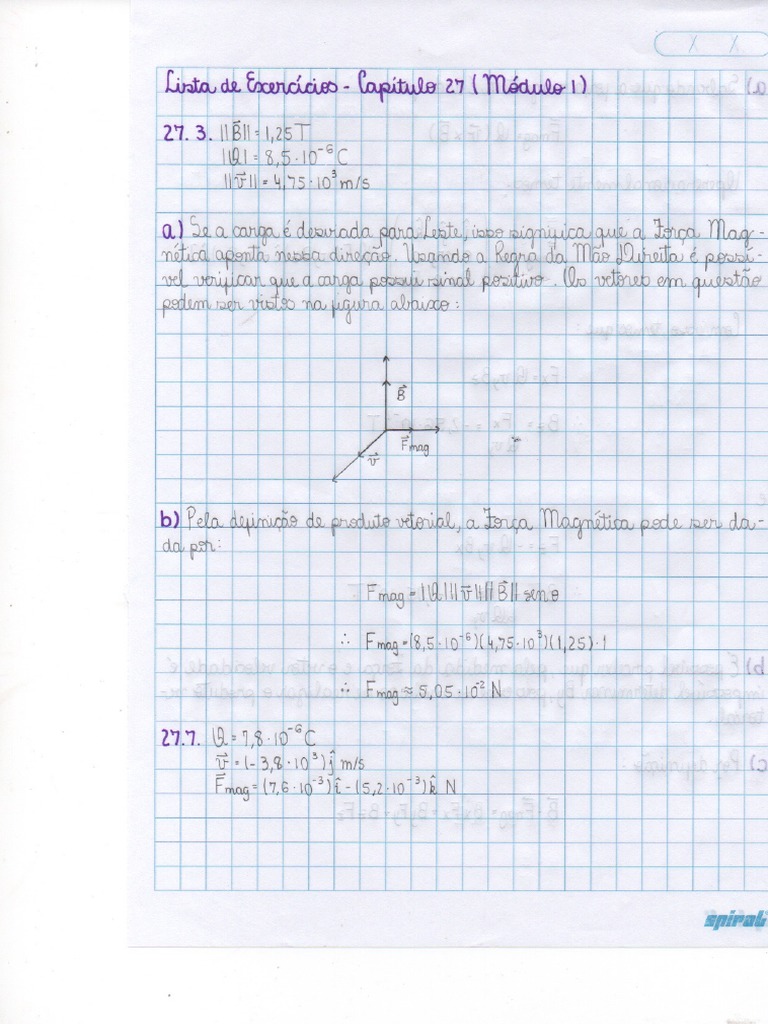 Lista de Exercícios - Capítulo 27 (Módulo 1)
27.3. ||B⃗|| = 1,25 T
|Q| = 8,5·10⁻⁶ C
||v⃗|| = 4,75·10³ m/s
a) Se a carga é desviada para Leste, isso significa que a Força Mag-
nética aponta nessa direção. Usando a Regra da Mão Direita é possí-
vel verificar que a carga possui sinal positivo. Os vetores em questão
podem ser vistos na figura abaixo:
B⃗
F⃗mag
v⃗
b) Pela definição de produto vetorial, a Força Magnética pode ser da-
da por:
Fmag = |Q| ||v⃗|| ||B⃗|| sen θ
∴ Fmag = (8,5·10⁻⁶)(4,75·10³)(1,25)·1
∴ Fmag ≈ 5,05·10⁻² N
27.7. Q = 7,8·10⁻⁶ C
v⃗ = (-3,8·10³) ĵ m/s
F⃗mag = (7,6·10⁻³) î - (5,2·10⁻³) k̂ N
spiral